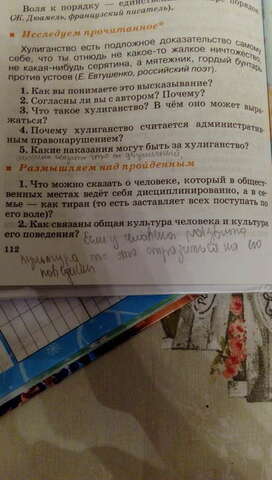 Воля к порядку — единственный порядок
(Ж. Дюамель, французский писатель).
Исследуем прочитанное*
Хулиганство есть подложное доказательство самому
себе, что ты отнюдь не какое-то жалкое ничтожество
не какая-нибудь серятина, а мятежник, гордый бунтарь
против устоев (Е. Евтушенко, российский поэт).
1. Как вы понимаете это высказывание?
2. Согласны ли вы с автором? Почему?
3. Что такое хулиганство? В чём оно может выра-
жаться?
4. Почему хулиганство считается административ-
ным правонарушением?
5. Какие наказания могут быть за хулиганство?
Размышляем над пройденным
1. Что можно сказать о человеке, который в общест-
венных местах ведёт себя дисциплинированно, а в се-
мье — как тиран (то есть заставляет всех поступать по
его воле)?
2. Как связаны общая культура человека и культура
его поведения? Если у человека
112
культура то это отразиться на его
поведении